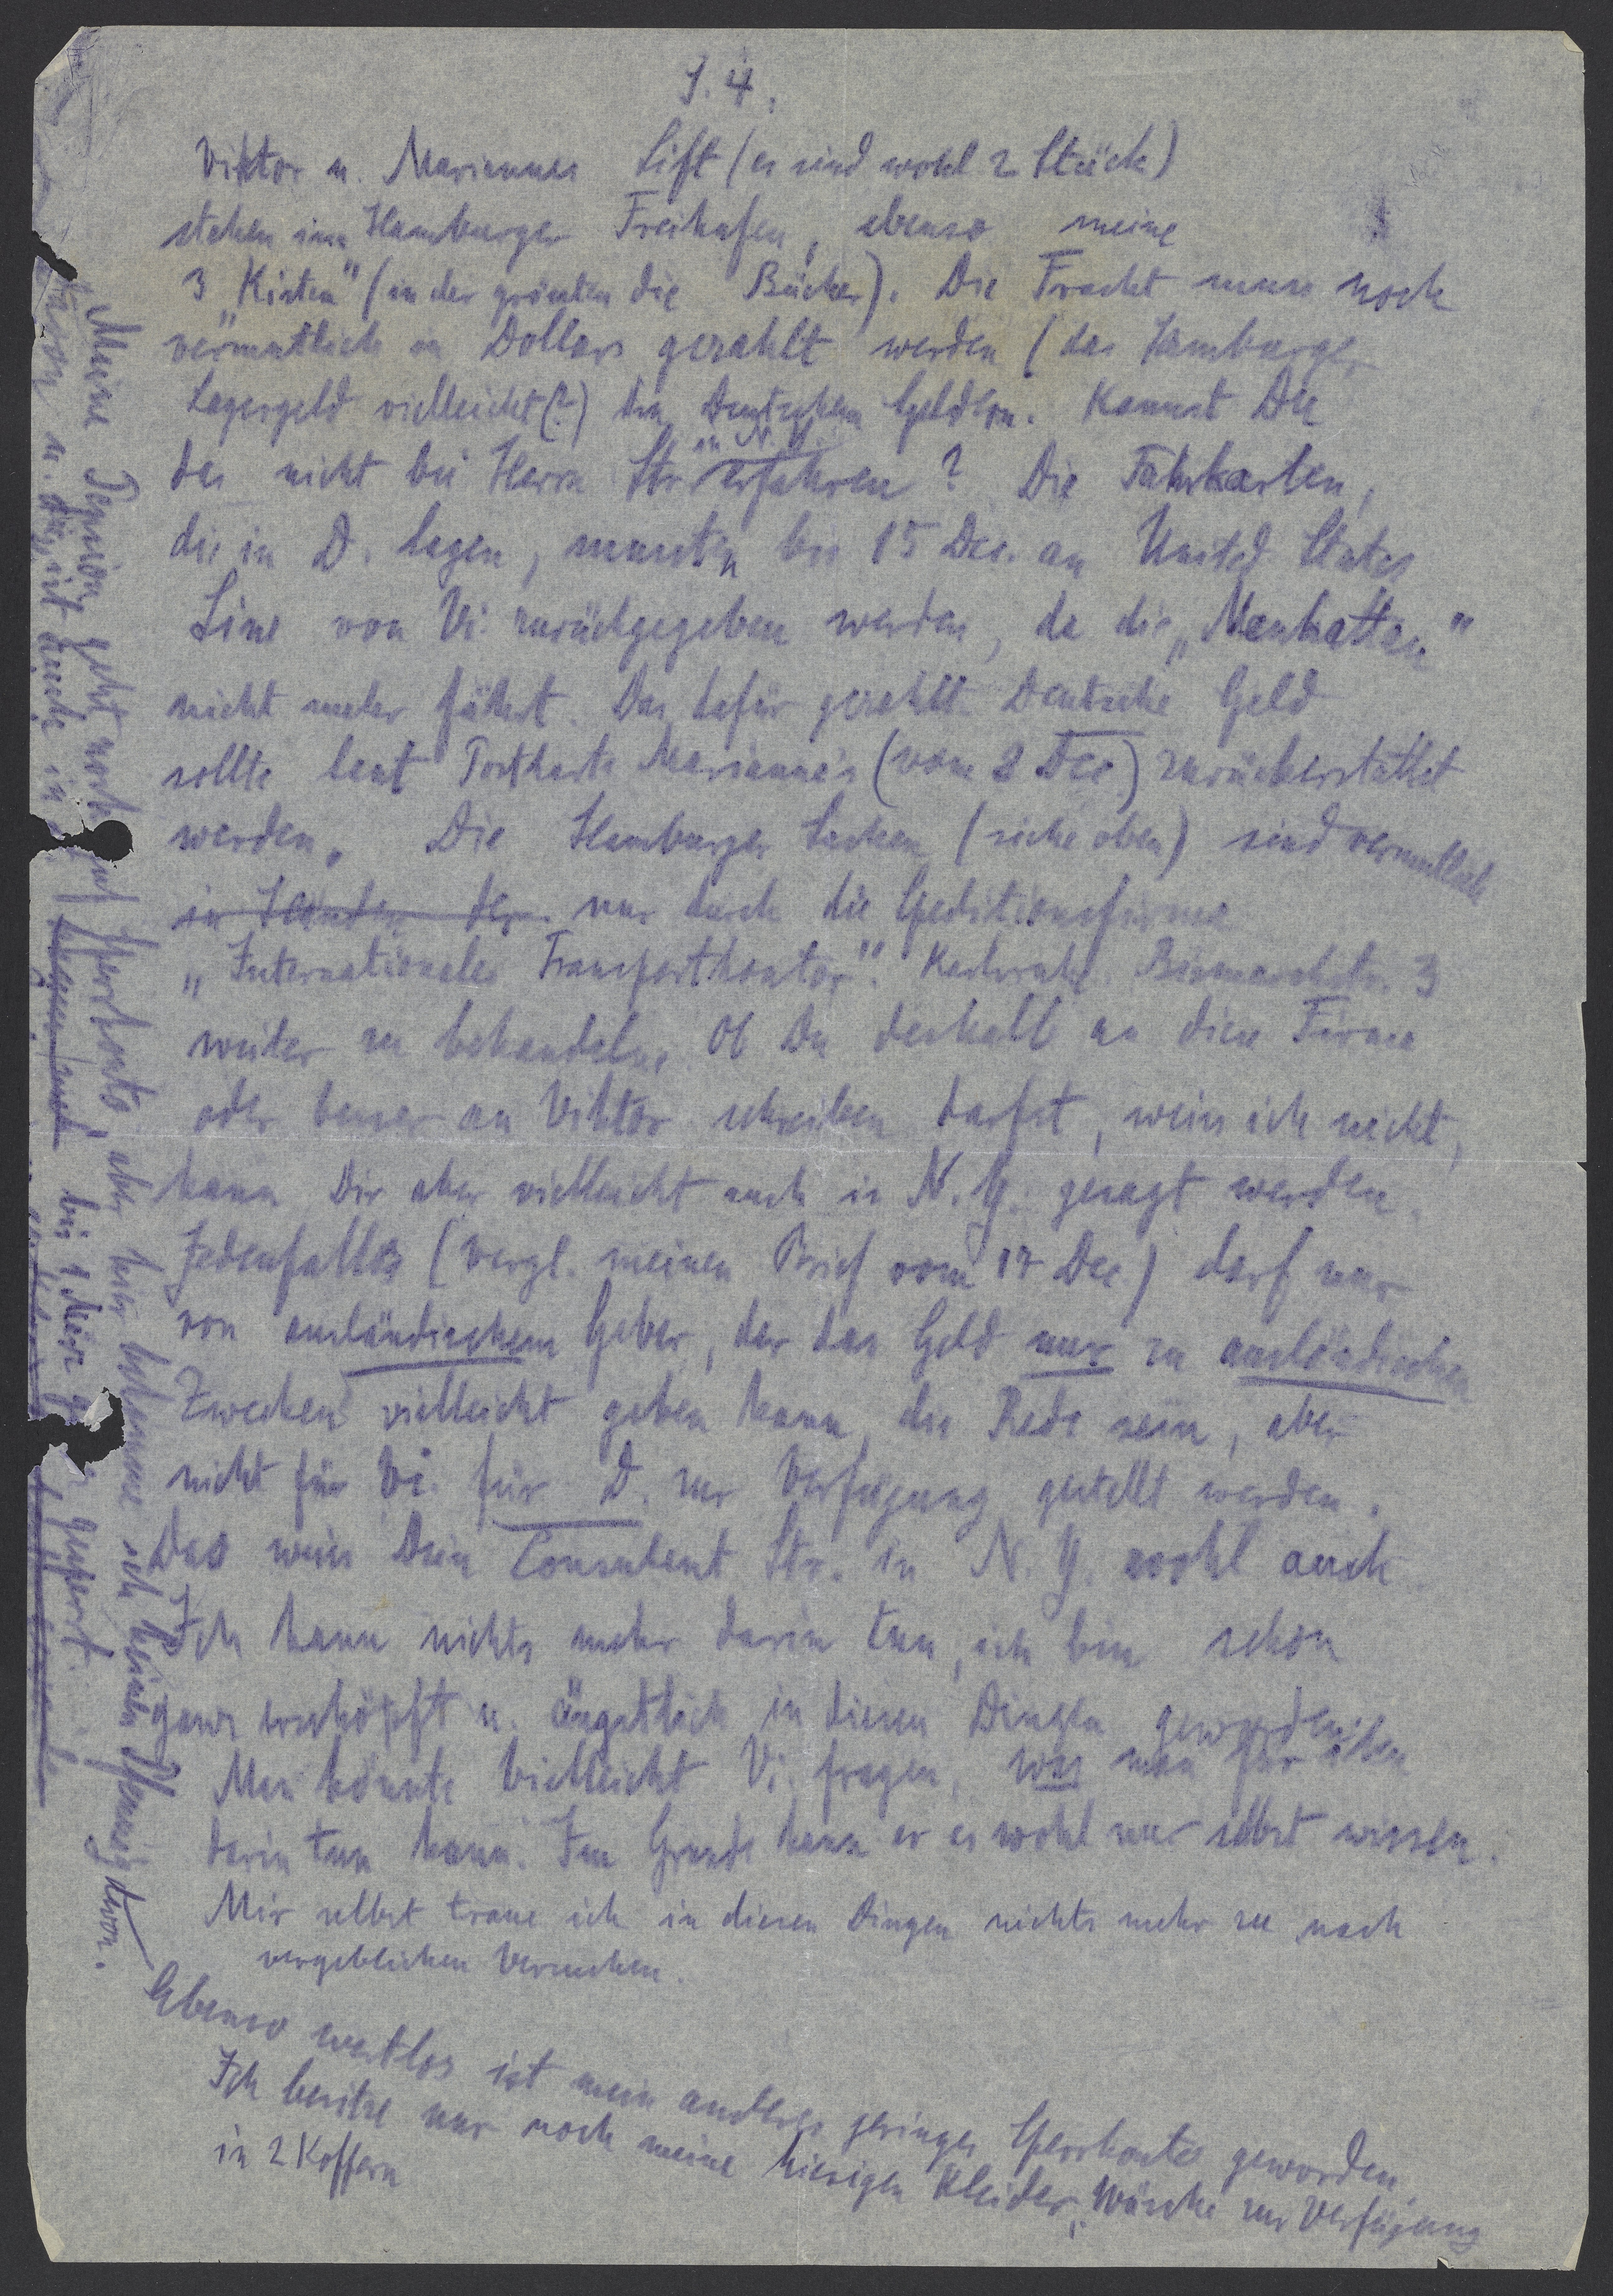 S. 4.
Viktor u. Mariannes Lift (es sind wohl 2 Stück)
stehen im Hamburger Freihafen, ebenso meine
3 "Kisten" (in der grössten die Bücher). Die Fracht muss noch
vermutlich in Dollars gezahlt werden (das Hamburger
Lagergeld vielleicht(?) in Deutschen Geldern. Kannst Du
das nicht bei Herrn Str. in N. Y. erfahren? Die Fahrkarten,
die in D. lagen, mussten bis 15 Dec. an United States
Line von Vi. zurückgegeben werden, da die „Manhattan"
nicht mehr fährt. Das dafür gezahlte Deutsche Geld
sollte laut Postkarte Marianne's (vom 2 Dec.) zurückerstattet
werden. Die Hamburger Sachen (siehe oben) sind vermutlich
in Händen der nur durch die Speditionsfirma
„Internationales Transportkontor". Karlsruhe. Bismarckstr. 3
weiter zu behandeln. Ob Du deshalb an diese Firma
oder besser an Viktor schreiben darfst, weiss ich nicht,
kann Dir aber vielleicht auch in N. Y. gesagt werden.
Jedenfalles (vergl. meinen Brief vom 17 Dec) darf nur
von ausländischem Geber, der das Geld nur zu ausländischen
Zwecken vielleicht geben kann, die Rede sein, aber
nicht für Vi. für D. zur Verfügung gestellt werden.
Das weiss Dein Consulent Str. in N. Y. wohl auch
Ich kann nichts mehr darin tun, ich bin schon
ganz erschöpft u. ängstlich in diesen Dingen geworden.
Man könnte vielleicht Vi. fragen, was man für ihn
darin tun kann. Im Grunde kann er es wohl nur selbst wissen.
Mir selbst traue ich in diesen Dingen nichts mehr zu nach
vergeblichen Versuchen.
Ebenso wertlos ist mein anderes geringes Sperrkonto geworden
Ich besitze nur noch meine hiesigen Kleider, Wäsche zur Verfügung
in 2 Koffern
Meine Pension geht noch auf Sperrkonto, aber hier bekomme ich keinen Pfennig davon.
davon u. dies ist auch in bis 1 März gesperrt.